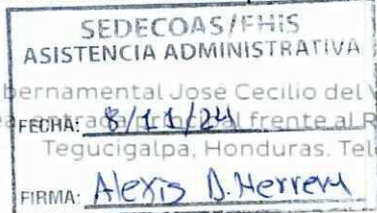 SEDECOAS/FHIS
ASISTENCIA ADMINISTRATIVA
bernamental José Cecilio del V
entrada principal frente al R
FECHA: 8/11/24
Tegucigalpa, Honduras. Tel
FIRMA: Alexis D. Herrera